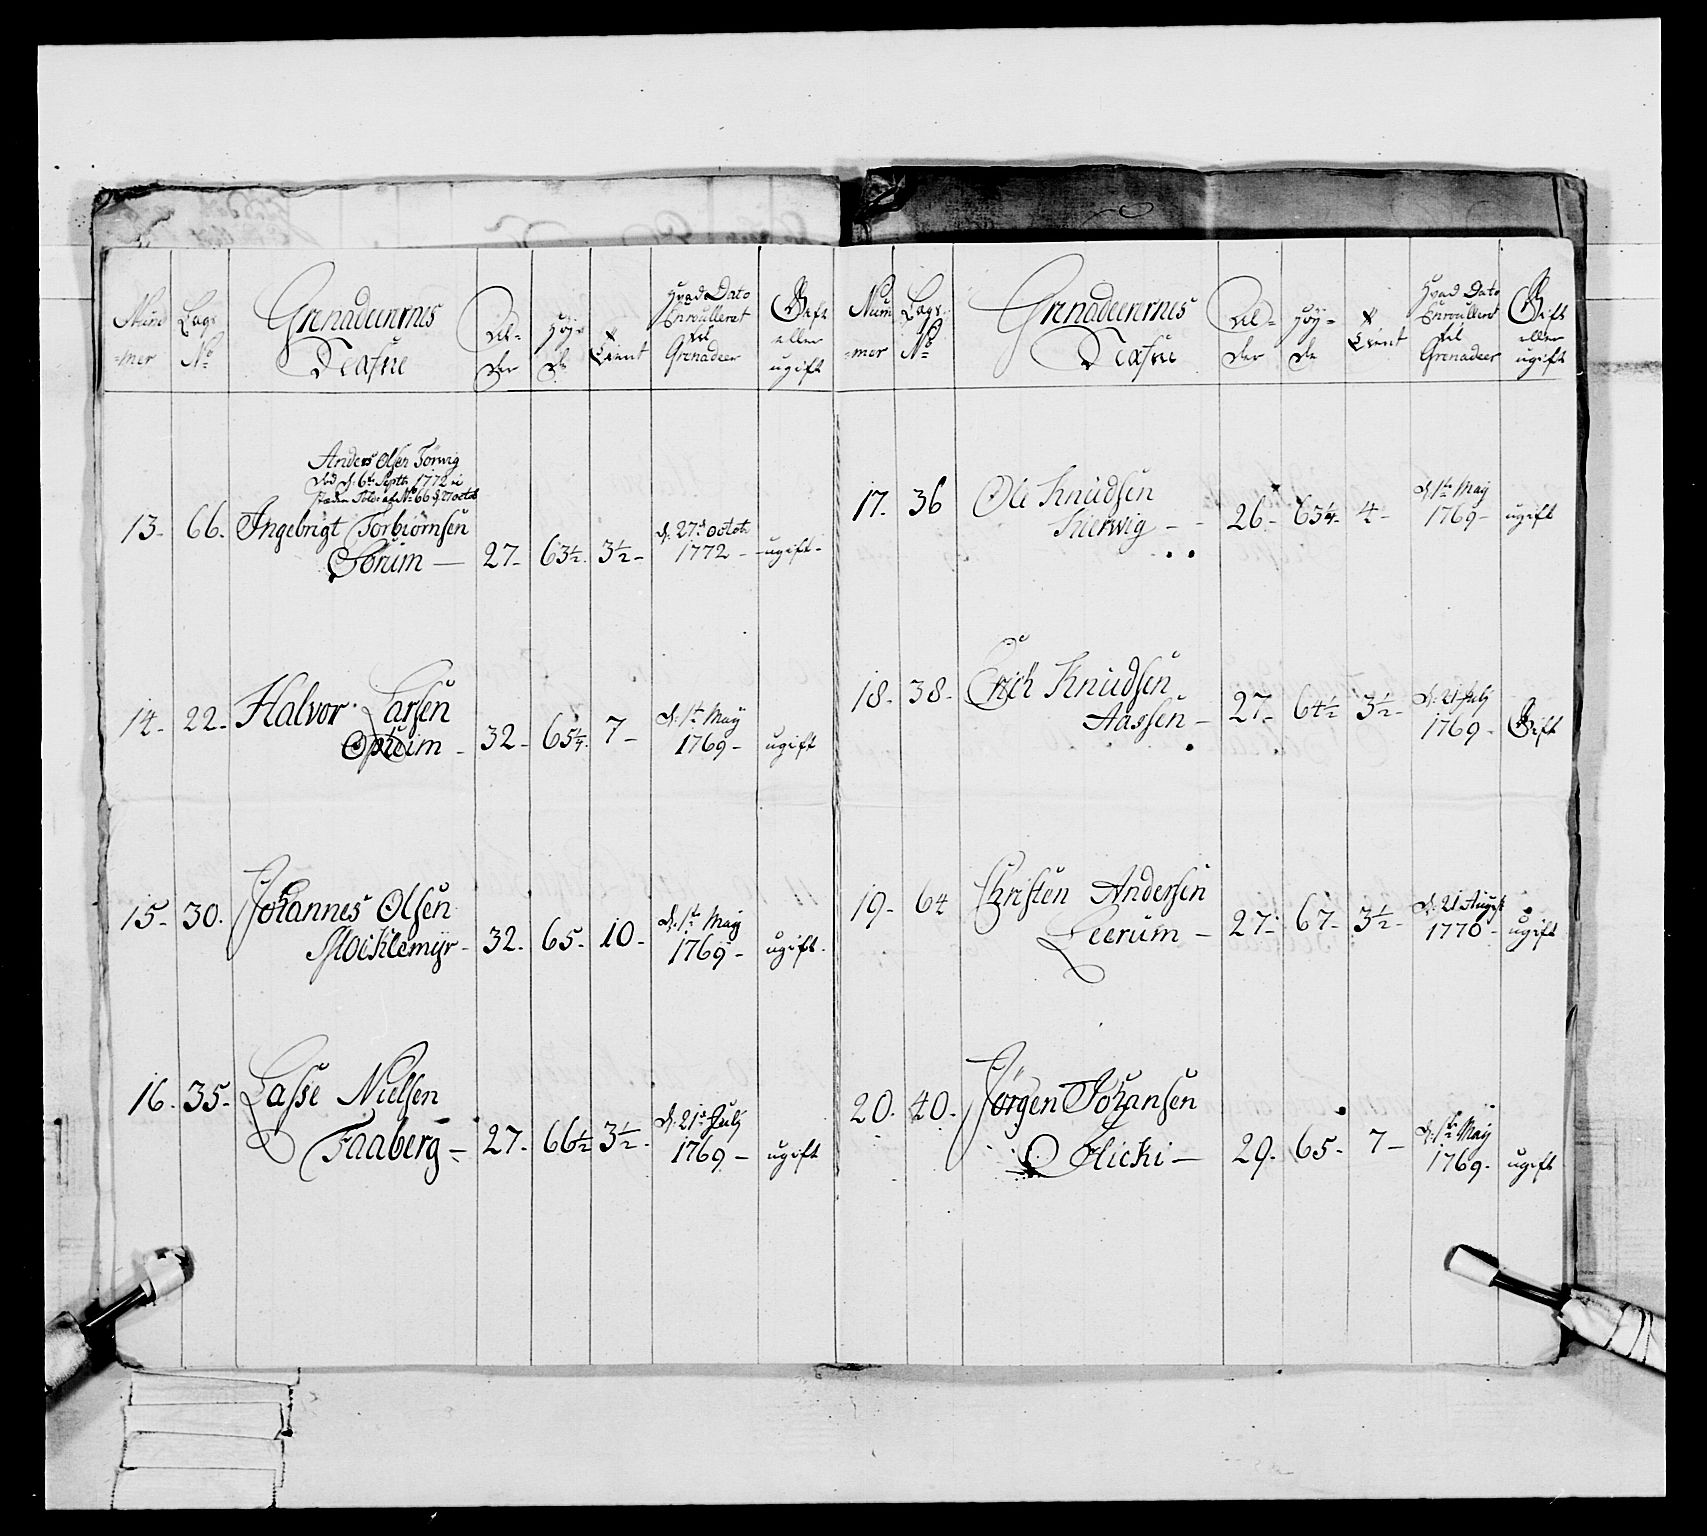 Num
-mer
Lags
No
Grenadeerernes
Nafne
Al-
der
Høy-
de
Tient
Hvad Dato
Enroulleret
til
Grenadeer
Gift
eller
ugift
Anders Olsen
død d. 6te Septbr 1772 i
66
13- 66. Ingebrigt Torbiörnsen
Sørum — 27- 63½. 3½- d. 27de octobr
1772- ugift-
14- 22- Halvor Larsen
Opheim - 32- 65¼. 7- d. 1te May
1769- ugift
15- 30. Johannes Olsen
32. 65- 10- d. 1te May
1769- ugift-
16- 35- Lasse Nielsen
Faaberg- 27- 66½ 3½- d. 21de July
1769- ugift
Num
-mer
Lags
No
Grenadeerernes
Nafne
Al-
der
Høy-
de
Tient
Hvad Dato
Enroulleret
til
Grenadeer
Gift
eller
ugift
17- 36 Ole Knudsen
26- 63¼- 4- d. 1te May
1769- ugift
18- 38- Erich Knudsen
Aassen- 27- 64½ 3½- d. 21 July
1769- Gift
19- 64 Christen Andersen
Leerum- 27- 67- 3½- d. 21 August
1770- ugift
20- 40- Jørgen Johansen
Flicki- 29- 65- 7- d. 1te May
1769- ugift